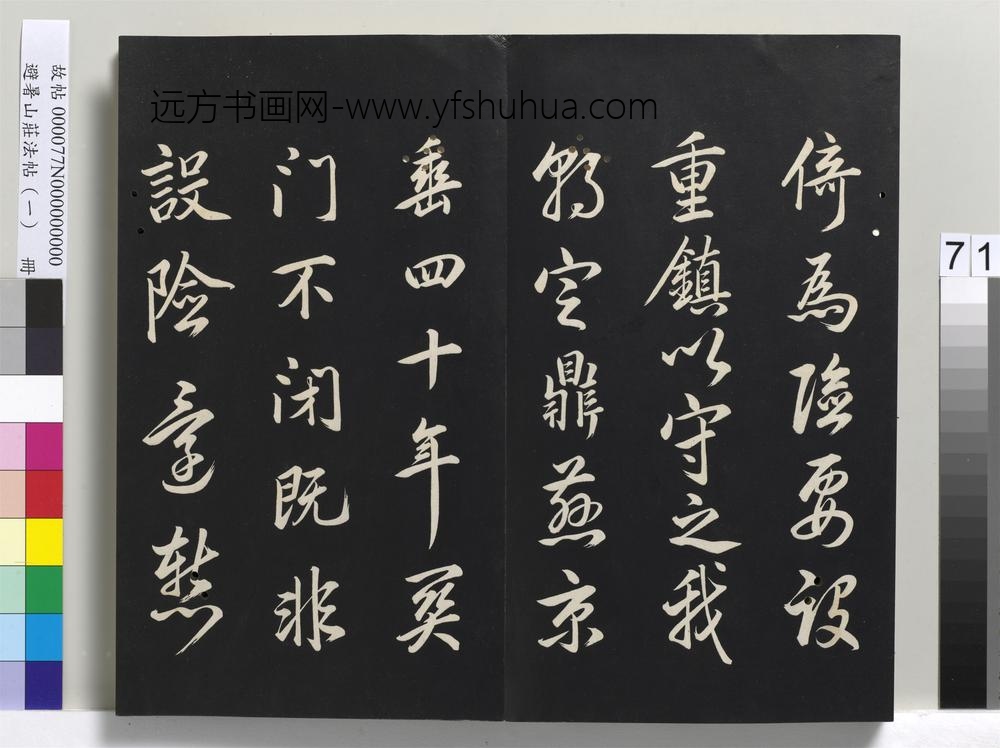 远方书画网-www.yfshuhua.com
倚為險要設
重鎮以守之我
朝定鼎燕京
垂四十年
门不闭既非
設險
故帖 000077N000000000
避暑山莊法帖（一） 冊
71